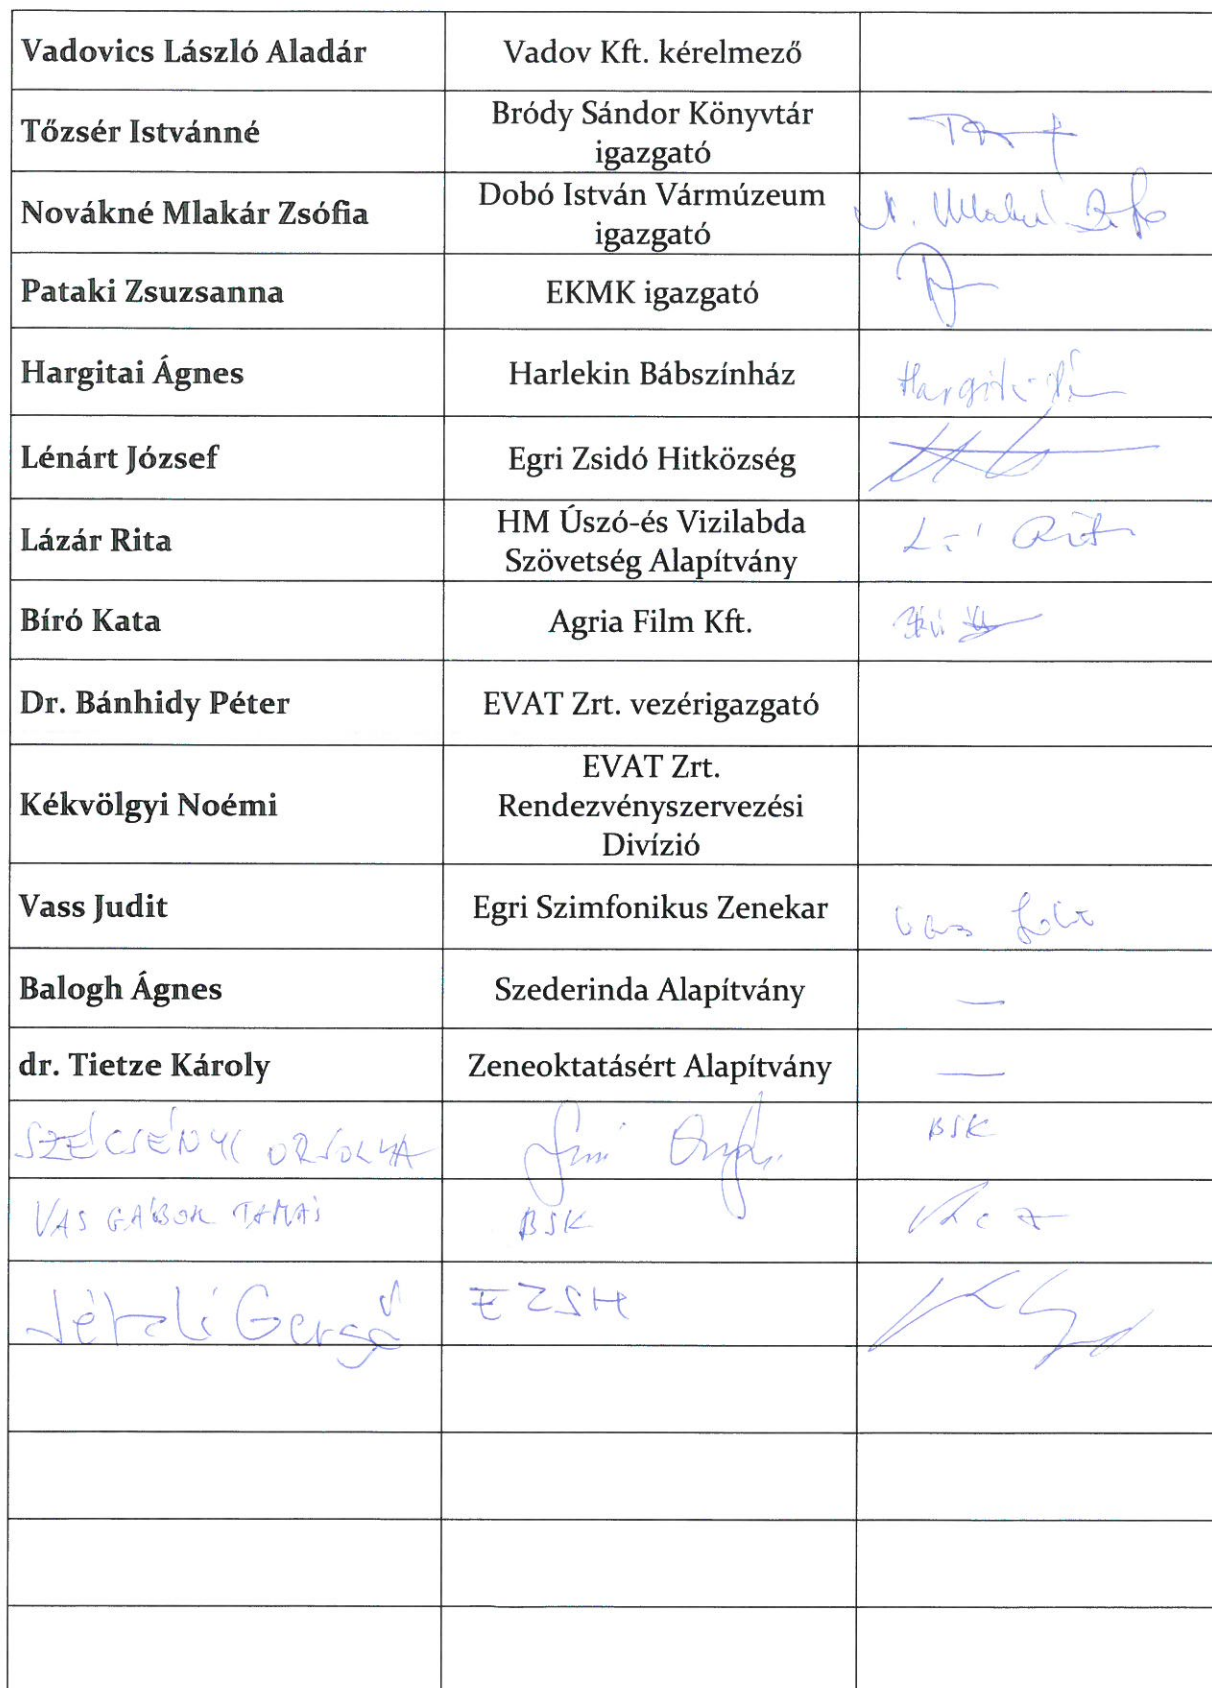 Vadovics László Aladár
Vadov Kft. kérelmező
Tőzsér Istvánné
Bródy Sándor Könyvtár
igazgató
Novákné Mlakár Zsófia
Dobó István Vármúzeum
igazgató
N. Mlakár
Pataki Zsuzsanna
EKMK igazgató
Hargitai Ágnes
Harlekin Bábszínház
Lénárt József
Egri Zsidó Hitközség
Lázár Rita
HM Úszó-és Vizilabda
Szövetség Alapítvány
Bíró Kata
Agria Film Kft.
Dr. Bánhidy Péter
EVAT Zrt. vezérigazgató
Kékvölgyi Noémi
EVAT Zrt.
Rendezvényszervezési
Divízió
Vass Judit
Egri Szimfonikus Zenekar
Balogh Ágnes
Szederinda Alapítvány
—
dr. Tietze Károly
Zeneoktatásért Alapítvány
—
SZÉCSÉNYI ORSOLYA
BSK
VAS GÁBOR TAMÁS
BSK
Gergő
EZSH